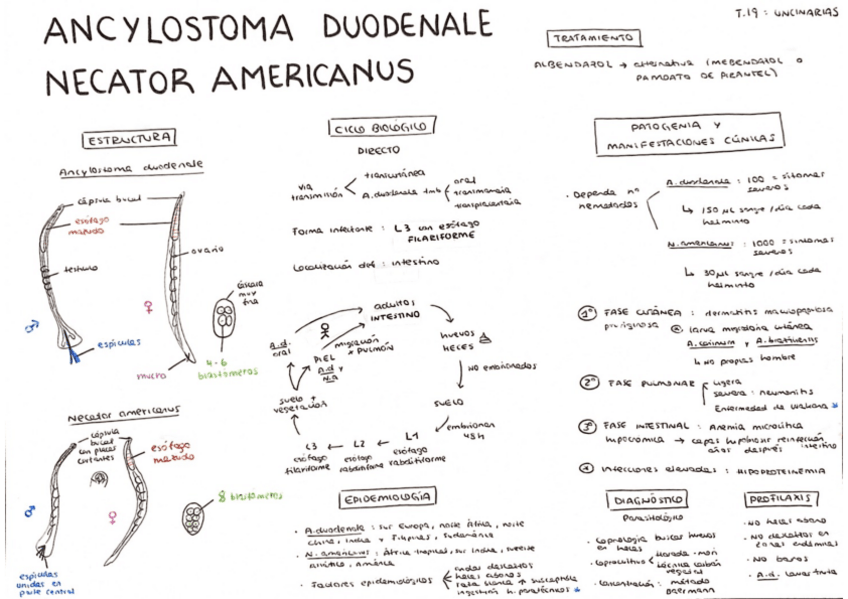 ANCYLOSTOMA DUODENALE
NECATOR AMERICANUS
T.19 : UNCINARIAS
TRATAMIENTO
ALBENDAZOL → alternativa (MEBENDAZOL o
PAMOATO DE PIRANTEL)
ESTRUCTURA
Ancylostoma duodenale
cápsula bucal
esófago
mazudo
testículo
ovario
espículas
mucro
cáscara
muy
fina
4-6
blastómeros
Necator americanus
cápsula
bucal
con placas
cortantes
esófago
mazudo
8 blastómeros
espículas
unidas en
parte central
CICLO BIOLÓGICO
DIRECTO
vía
transmisión
transcutánea
A. duodenale tmb
oral
transmamaria
transplacentaria
Forma infectante : L3 con esófago
FILARIFORME
Localización def : intestino
adultos
INTESTINO
huevos
HECES
NO embrionados
SUELO
embrionan
48h
L1
esófago
rabditiforme
L2
esófago
L3
esófago
filariforme
suelo +
vegetación
A.d.
oral
PIEL
A.d y
N.a
migración
+ PULMÓN
EPIDEMIOLOGÍA
· A. duodenale : sur Europa, norte África, norte
china, India y Filipinas, Sudamérica
· N. americanus : África tropical, sur India, sureste
asiático, América
· Factores epidemiológicos
andar descalzos
heces abonos
raza blanca ↑ susceptible
ingestión h. paraténicos
PATOGENIA Y
MANIFESTACIONES CLÍNICAS
· Depende nº
nematodos
A. duodenale : 100 = síntomas
severos
↳ 150 µL sangre /día cada
helminto
N. americanus : 1000 = síntomas
severos
↳ 30 µL sangre /día cada
helminto
1º FASE CUTÁNEA : dermatitis maculopapulosa
pruriginosa
larva migratoria cutánea
A. caninum y A. braziliensis
↳ no propias hombre
2º FASE PULMONAR
ligera
severa : neumonitis
Enfermedad de wakana
3º FASE INTESTINAL : Anemia microcítica
hipocromica →
reinfección
años después
intestino
Infecciones elevadas : HIPOPROTEINEMIA
DIAGNÓSTICO
Parasitológico
· Coprología buscar huevos
en heces
· Coprocultivo
Harada - mori
técnica carbón
vegetal
· Concentración : método
Baermann
PROFILAXIS
· NO heces abono
· NO descalzos en
zonas endémicas
· NO baños
· A.d. lavar fruta